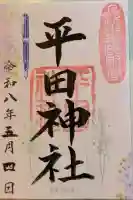 平田神社
令和八年五月四日